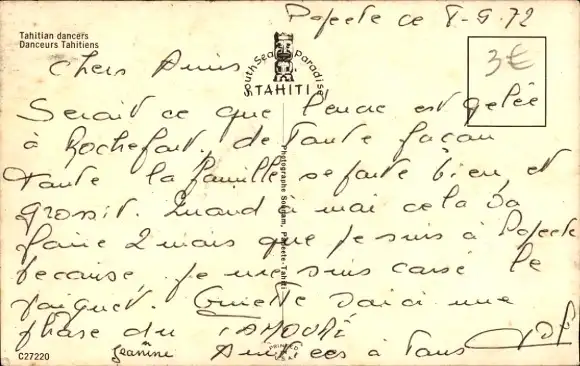 Papeete ce 8-9-72
Tahitian dancers
Danceurs Tahitiens
South Sea Paradise
TAHITI
3€
Chers Amis
Serait ce que l'encre est gelée
à Rochefort, de Toute façon
Toute la famille se porte bien, et
grossit. Quand à moi cela va
faire 2 mois que je suis à Papeete
because, je me suis cassé le
poignet. Ginette voici une
phase du TAMOURÉ
Jeanine Amitiés à Tous
Photographe Sounam, Papeete-Tahiti
PRINTED IN U.S.A.
C27220